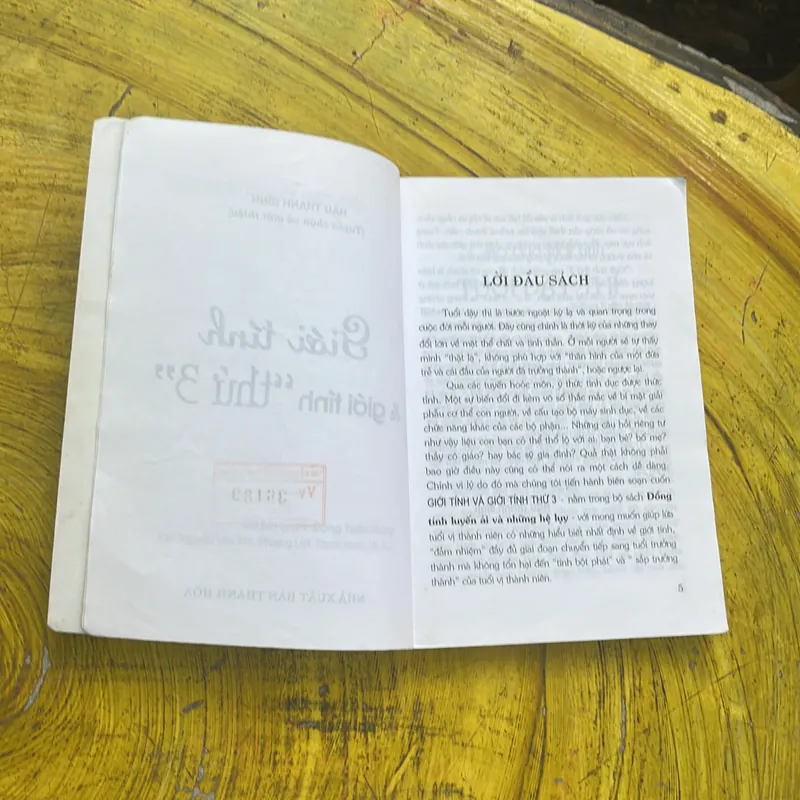 LỜI ĐẦU SÁCH
Tuổi dậy thì là bước ngoặt kỳ lạ và quan trọng trong
cuộc đời mỗi người. Đây cũng chính là thời kỳ của những thay
đổi lớn về mặt thể chất và tinh thần. Ở mỗi người sẽ tự thấy
mình "thật lạ", không phù hợp với "thân hình của một đứa
trẻ và cái đầu của người đã trưởng thành", hoặc ngược lại.
Qua các tuyến hoóc môn, ý thức tính dục được thức
tỉnh. Một sự biến đổi đi kèm vô số thắc mắc về bí mật giải
phẫu cơ thể con người, về cấu tạo bộ máy sinh dục, về các
chức năng khác của các bộ phận... Những câu hỏi riêng tư
như vậy liệu con bạn có thể thổ lộ với ai: bạn bè? bố mẹ?
thầy cô giáo? hay bác sỹ gia đình? Quả thật không phải
bao giờ điều này cũng có thể nói ra một cách dễ dàng.
Chính vì lý do đó mà chúng tôi tiến hành biên soạn cuốn
GIỚI TÍNH VÀ GIỚI TÍNH THỨ 3 - nằm trong bộ sách Đồng
tính luyến ái và những hệ lụy - với mong muốn giúp lứa
tuổi vị thành niên có những hiểu biết nhất định về giới tính,
"đảm nhiệm" đầy đủ giai đoạn chuyển tiếp sang tuổi trưởng
thành mà không tổn hại đến "tính bột phát" và " sắp trưởng
thành" của tuổi vị thành niên.
5
HÀN THANH BÌNH
(Tuyển chọn và giới thiệu)
Giới tính
& giới tính "thứ 3"
36189
NHÀ XUẤT BẢN THANH HÓA